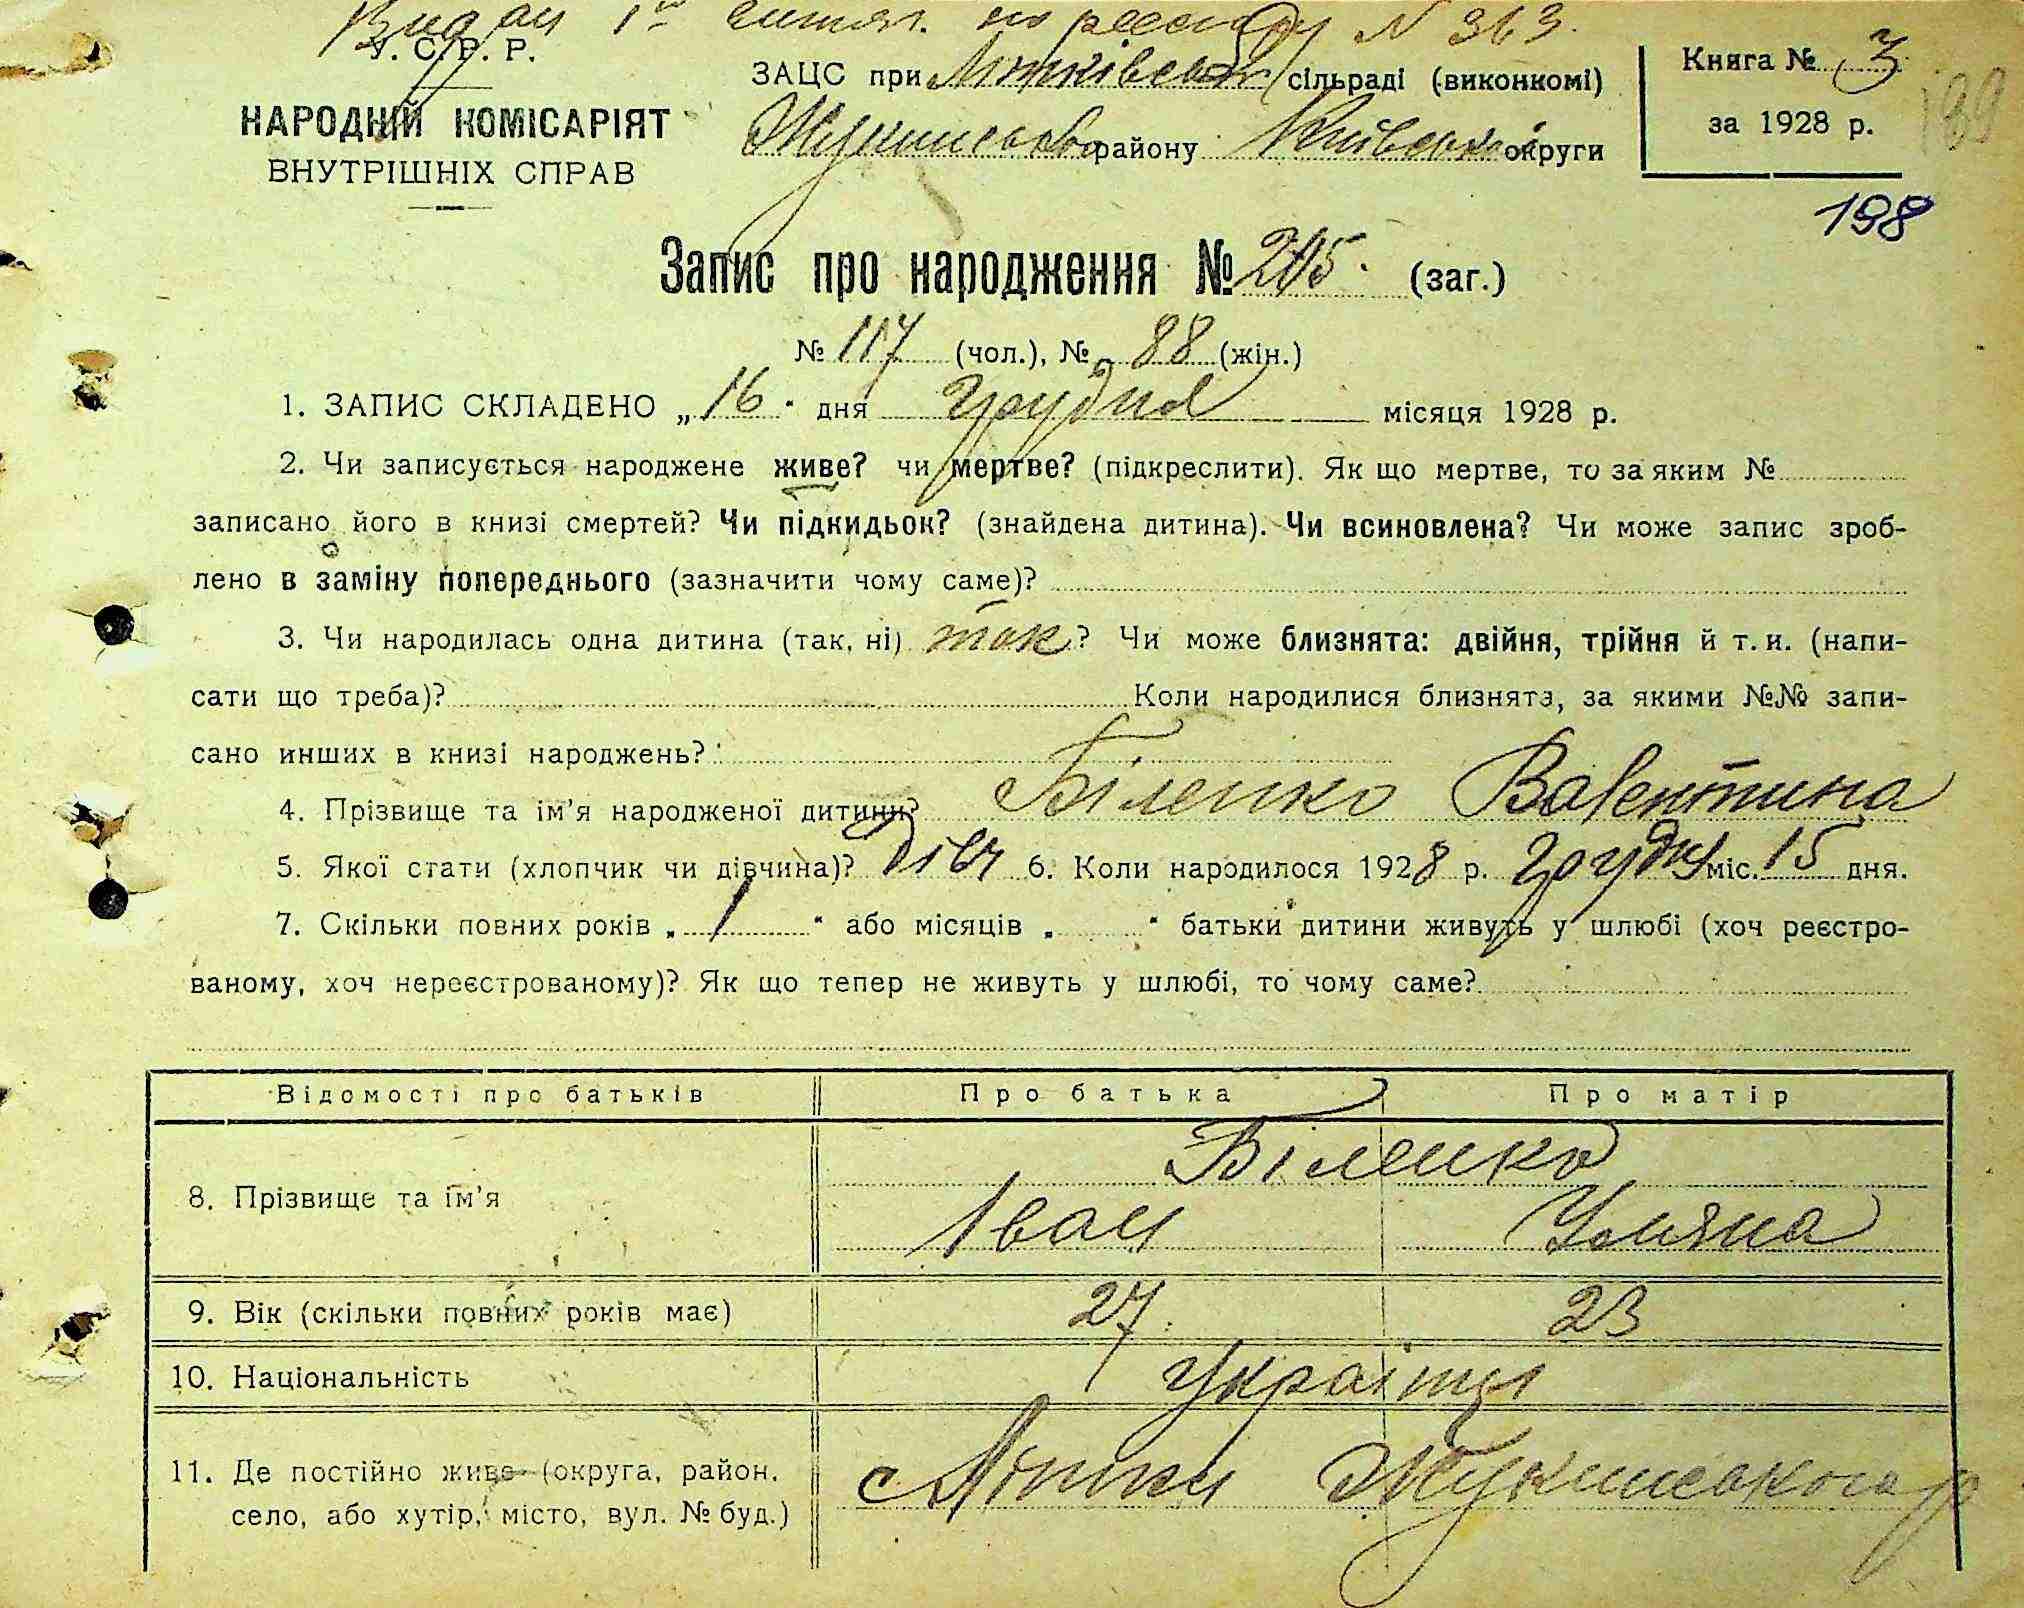 Видан 1й витяг. по реєстру N 363.
У. С. Р. Р.
НАРОДНІЙ КОМІСАРІЯТ
ВНУТРІШНІХ СПРАВ
ЗАЦС при Літківській сільраді (виконкомі)
Жукинського району Київської округи
Книга № 3
за 1928 р.
199
198
Запис про народження № 205. (заг.)
№ 117 (чол.), № 88 (жін.)
1. ЗАПИС СКЛАДЕНО „ 16 " дня грудня місяця 1928 р.
2. Чи записується народжене живе? чи мертве? (підкреслити). Як що мертве, то за яким №
записано його в книзі смертей? Чи підкидьок? (знайдена дитина). Чи всиновлена? Чи може запис зроб-
лено в заміну попереднього (зазначити чому саме)?
3. Чи народилась одна дитина (так, ні) так ? Чи може близнята: двійня, трійня й т. и. (напи-
сати що треба)? Коли народилися близнята, за якими №№ запи-
сано инших в книзі народжень?
4. Прізвище та ім'я народженої дитини? Біленко Валентина
5. Якої стати (хлопчик чи дівчина)? дівч 6. Коли народилося 1928 р. грудня міс. 15 дня.
7. Скільки повних років „ 1 " або місяців „ " батьки дитини живуть у шлюбі (хоч реєстро-
ваному, хоч нереєстрованому)? Як що тепер не живуть у шлюбі, то чому саме?
Відомості про батьків Про батька Про матір
8. Прізвище та ім'я Біленко
Іван Уляна
9. Вік (скільки повних років має) 27 23
10. Національність українці
11. Де постійно живе (округа, район,
село, або хутір, місто, вул. № буд.)
с Літки Жукинського р